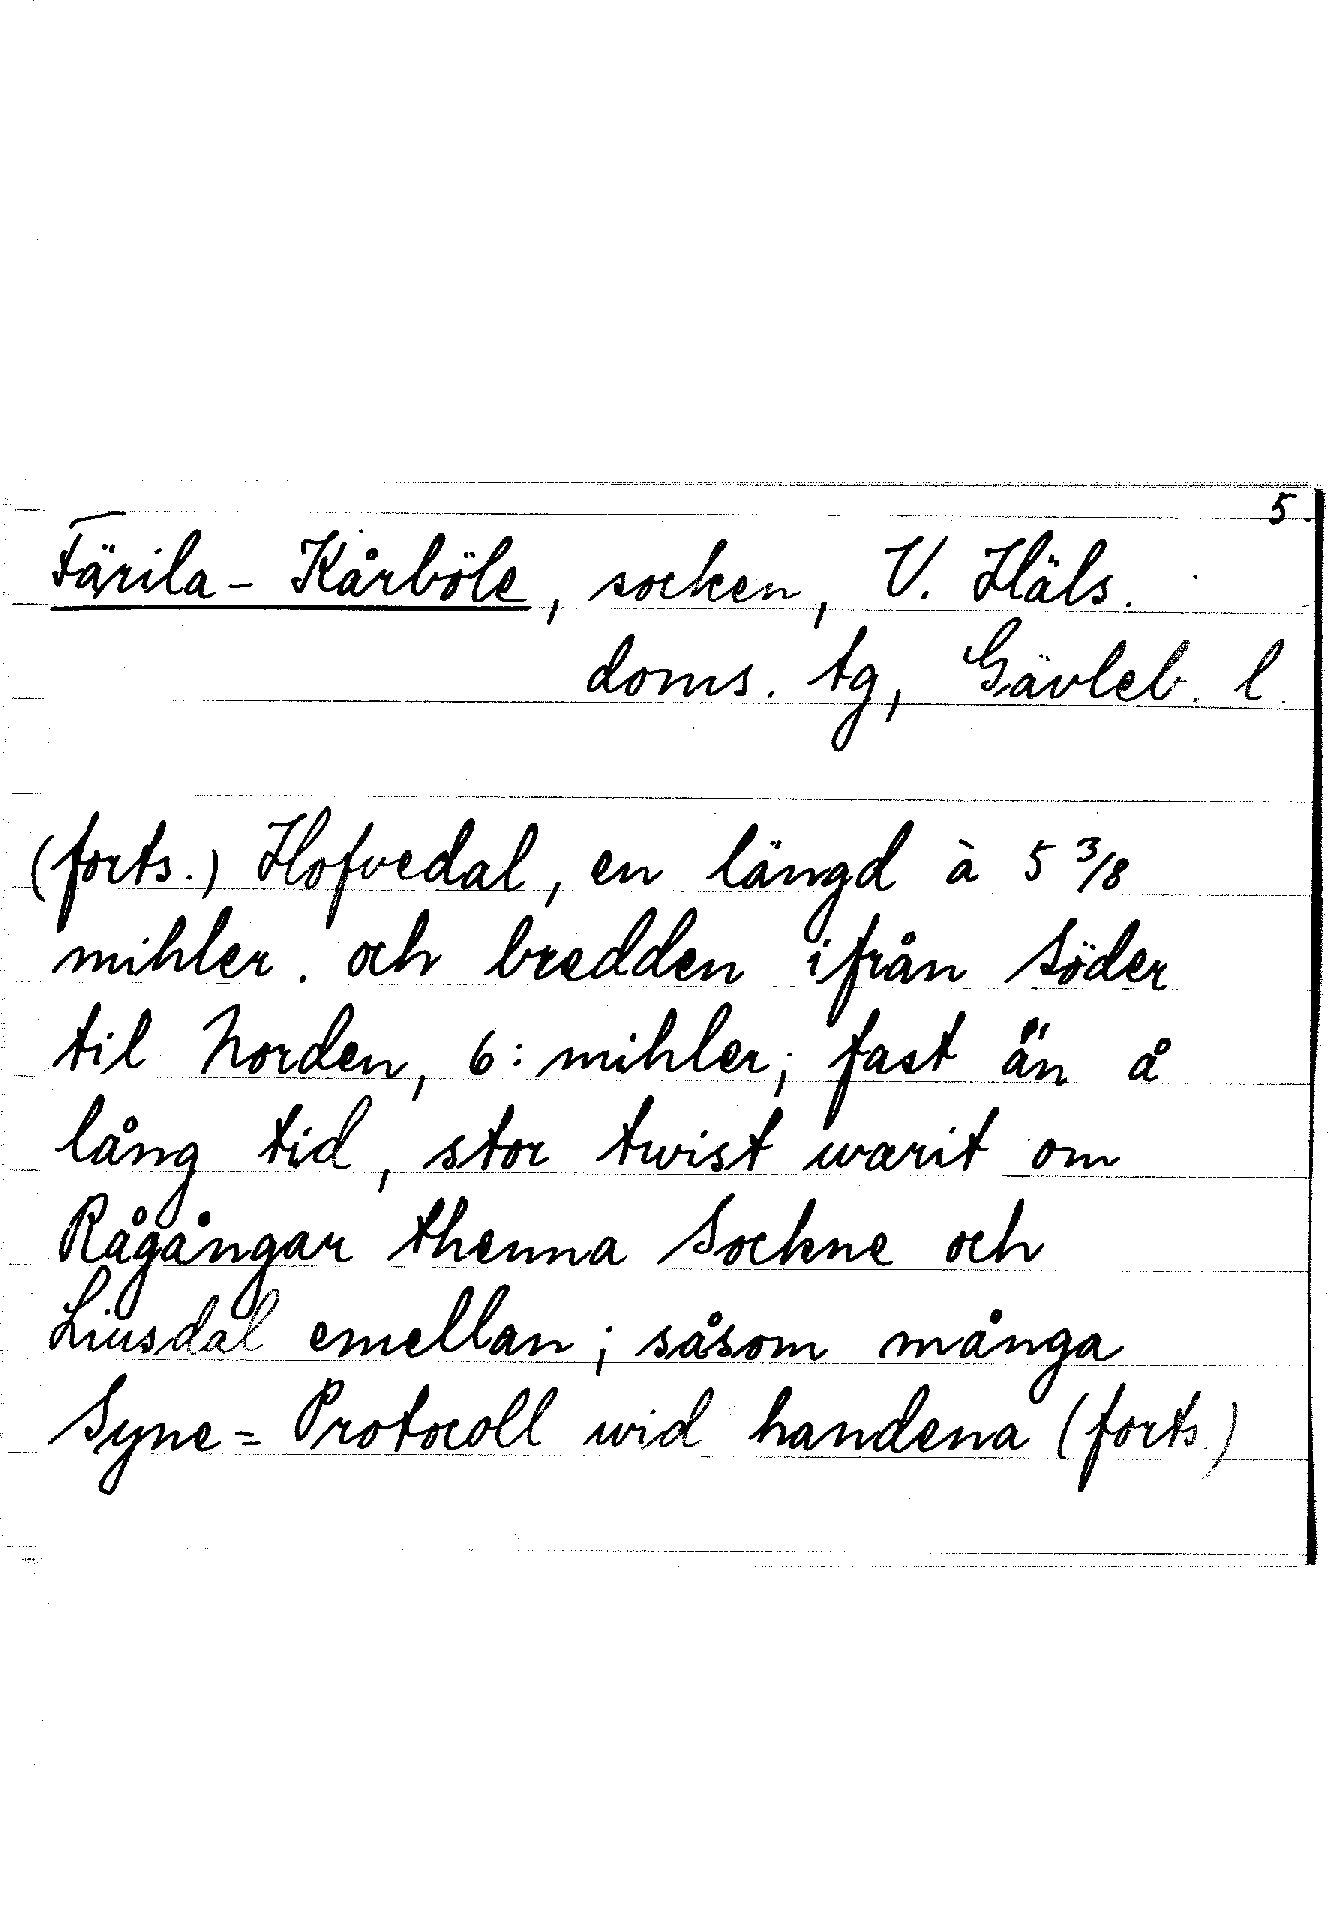 5.
Färila - Kårböle, socken, V. Häls.
doms. tg, Gävleb. l.
(forts.) Hofvedal, en längd à 5 3/8
mihler. och bredden ifrån Söder
til Norden, 6: mihler; fast än å
lång tid, stor twist warit om
Rågångar thenna Sockne och
Liusdal emellan; såsom många
Syne = Protocoll wid handena (forts.)